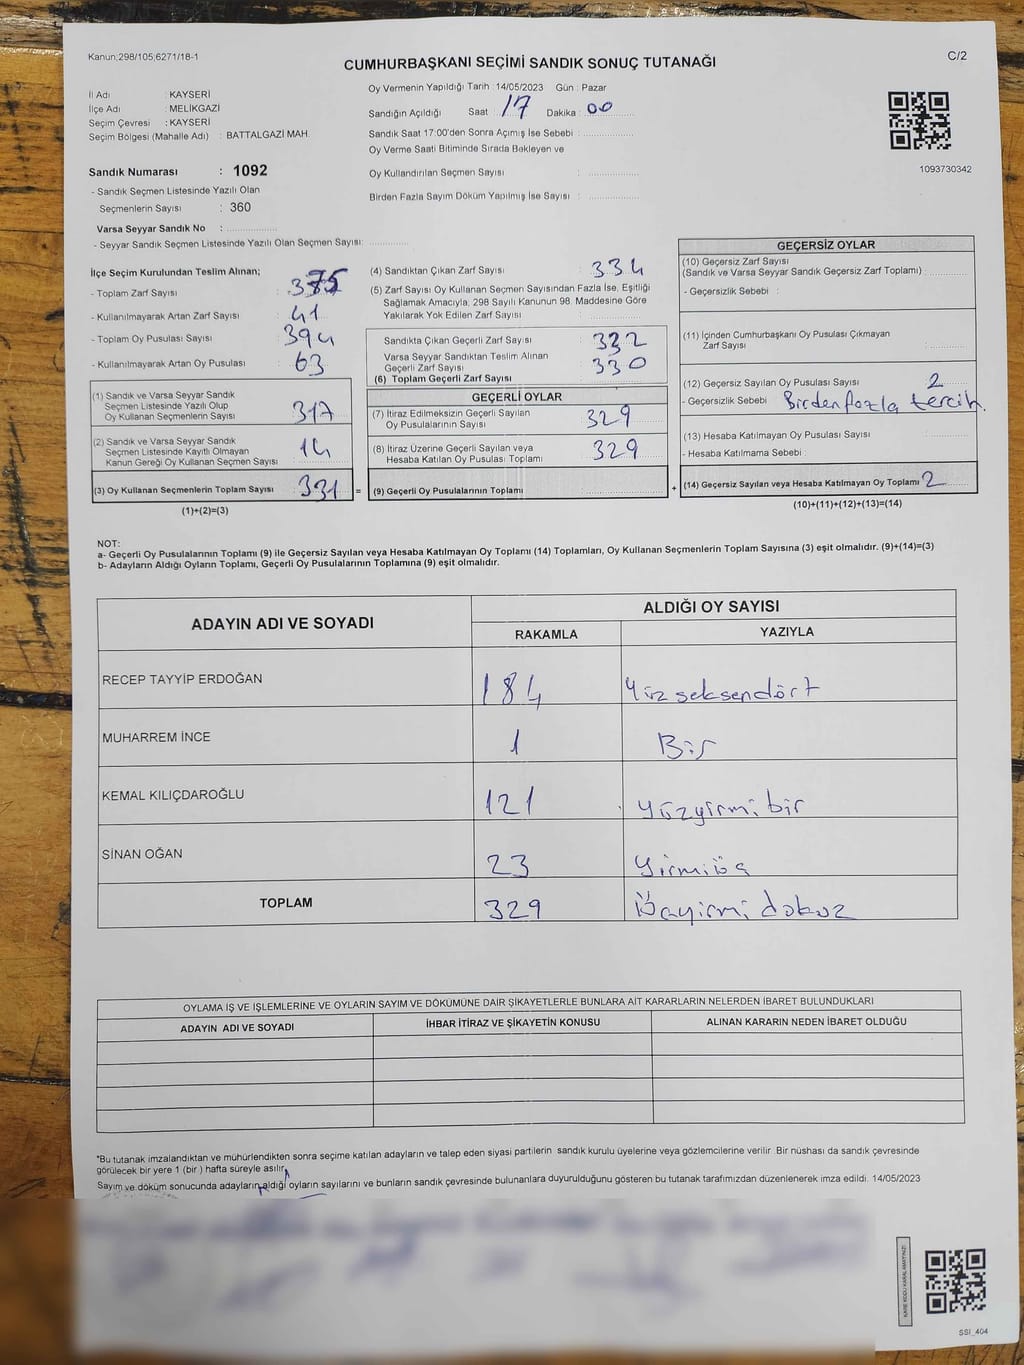 Kanun;298/105;6271/18-1
CUMHURBAŞKANI SEÇİMİ SANDIK SONUÇ TUTANAĞI
C/2
İl Adı : KAYSERİ
İlçe Adı : MELİKGAZİ
Seçim Çevresi : KAYSERİ
Seçim Bölgesi (Mahalle Adı) : BATTALGAZİ MAH.
Sandık Numarası : 1092
- Sandık Seçmen Listesinde Yazılı Olan
Seçmenlerin Sayısı : 360
Varsa Seyyar Sandık No :
- Seyyar Sandık Seçmen Listesinde Yazılı Olan Seçmen Sayısı:
Oy Vermenin Yapıldığı Tarih : 14/05/2023 Gün : Pazar
Sandığın Açıldığı Saat : 17 Dakika : 00
Sandık Saat 17:00'den Sonra Açımış İse Sebebi :
Oy Verme Saati Bitiminde Sırada Bekleyen ve
Oy Kullandırılan Seçmen Sayısı :
Birden Fazla Sayım Döküm Yapılmış İse Sayısı :
1093730342
İlçe Seçim Kurulundan Teslim Alınan;
- Toplam Zarf Sayısı : 375
- Kullanılmayarak Artan Zarf Sayısı : 41
- Toplam Oy Pusulası Sayısı : 394
- Kullanılmayarak Artan Oy Pusulası : 63
(1) Sandık ve Varsa Seyyar Sandık
Seçmen Listesinde Yazılı Olup
Oy Kullanan Seçmenlerin Sayısı : 317
(2) Sandık ve Varsa Seyyar Sandık
Seçmen Listesinde Kayıtlı Olmayan
Kanun Gereği Oy Kullanan Seçmen Sayısı : 14
(3) Oy Kullanan Seçmenlerin Toplam Sayısı : 331 =
(1)+(2)=(3)
(4) Sandıktan Çıkan Zarf Sayısı : 334
(5) Zarf Sayısı Oy Kullanan Seçmen Sayısından Fazla İse, Eşitliği
Sağlamak Amacıyla; 298 Sayılı Kanunun 98. Maddesine Göre
Yakılarak Yok Edilen Zarf Sayısı :
Sandıkta Çıkan Geçerli Zarf Sayısı : 332
Varsa Seyyar Sandıktan Teslim Alınan
Geçerli Zarf Sayısı : 330
(6) Toplam Geçerli Zarf Sayısı
GEÇERLİ OYLAR
(7) İtiraz Edilmeksizin Geçerli Sayılan
Oy Pusulalarının Sayısı : 329
(8) İtiraz Üzerine Geçerli Sayılan veya
Hesaba Katılan Oy Pusulası Toplamı : 329
(9) Geçerli Oy Pusulalarının Toplamı +
GEÇERSİZ OYLAR
(10) Geçersiz Zarf Sayısı
(Sandık ve Varsa Seyyar Sandık Geçersiz Zarf Toplamı) :
- Geçersizlik Sebebi :
(11) İçinden Cumhurbaşkanı Oy Pusulası Çıkmayan
Zarf Sayısı :
(12) Geçersiz Sayılan Oy Pusulası Sayısı : 2
- Geçersizlik Sebebi : Birden fazla tercih.
(13) Hesaba Katılmayan Oy Pusulası Sayısı :
- Hesaba Katılmama Sebebi :
(14) Geçersiz Sayılan veya Hesaba Katılmayan Oy Toplamı : 2
(10)+(11)+(12)+(13)=(14)
NOT:
a- Geçerli Oy Pusulalarının Toplamı (9) ile Geçersiz Sayılan veya Hesaba Katılmayan Oy Toplamı (14) Toplamları, Oy Kullanan Seçmenlerin Toplam Sayısına (3) eşit olmalıdır. (9)+(14)=(3)
b- Adayların Aldığı Oyların Toplamı, Geçerli Oy Pusulalarının Toplamına (9) eşit olmalıdır.
ADAYIN ADI VE SOYADI ALDIĞI OY SAYISI
RAKAMLA YAZIYLA
RECEP TAYYİP ERDOĞAN 184 Yüz seksendört
MUHARREM İNCE 1 Bir
KEMAL KILIÇDAROĞLU 121 yüzyirmi bir
SİNAN OĞAN 23 yirmiüç
TOPLAM 329 Üçyirmi dokuz
OYLAMA İŞ VE İŞLEMLERİNE VE OYLARIN SAYIM VE DÖKÜMÜNE DAİR ŞİKAYETLERLE BUNLARA AİT KARARLARIN NELERDEN İBARET BULUNDUKLARI
ADAYIN ADI VE SOYADI İHBAR İTİRAZ VE ŞİKAYETİN KONUSU ALINAN KARARIN NEDEN İBARET OLDUĞU
*Bu tutanak imzalandıktan ve mühürlendikten sonra seçime katılan adayların ve talep eden siyasi partilerin sandık kurulu üyelerine veya gözlemcilerine verilir. Bir nüshası da sandık çevresinde
görülecek bir yere 1 (bir ) hafta süreyle asılır.
Sayım ve döküm sonucunda adayların aldığı oyların sayılarını ve bunların sandık çevresinde bulunanlara duyurulduğunu gösteren bu tutanak tarafımızdan düzenlenerek imza edildi. 14/05/2023
KARE KODU KARALAMAYINIZ!
SSİ_404